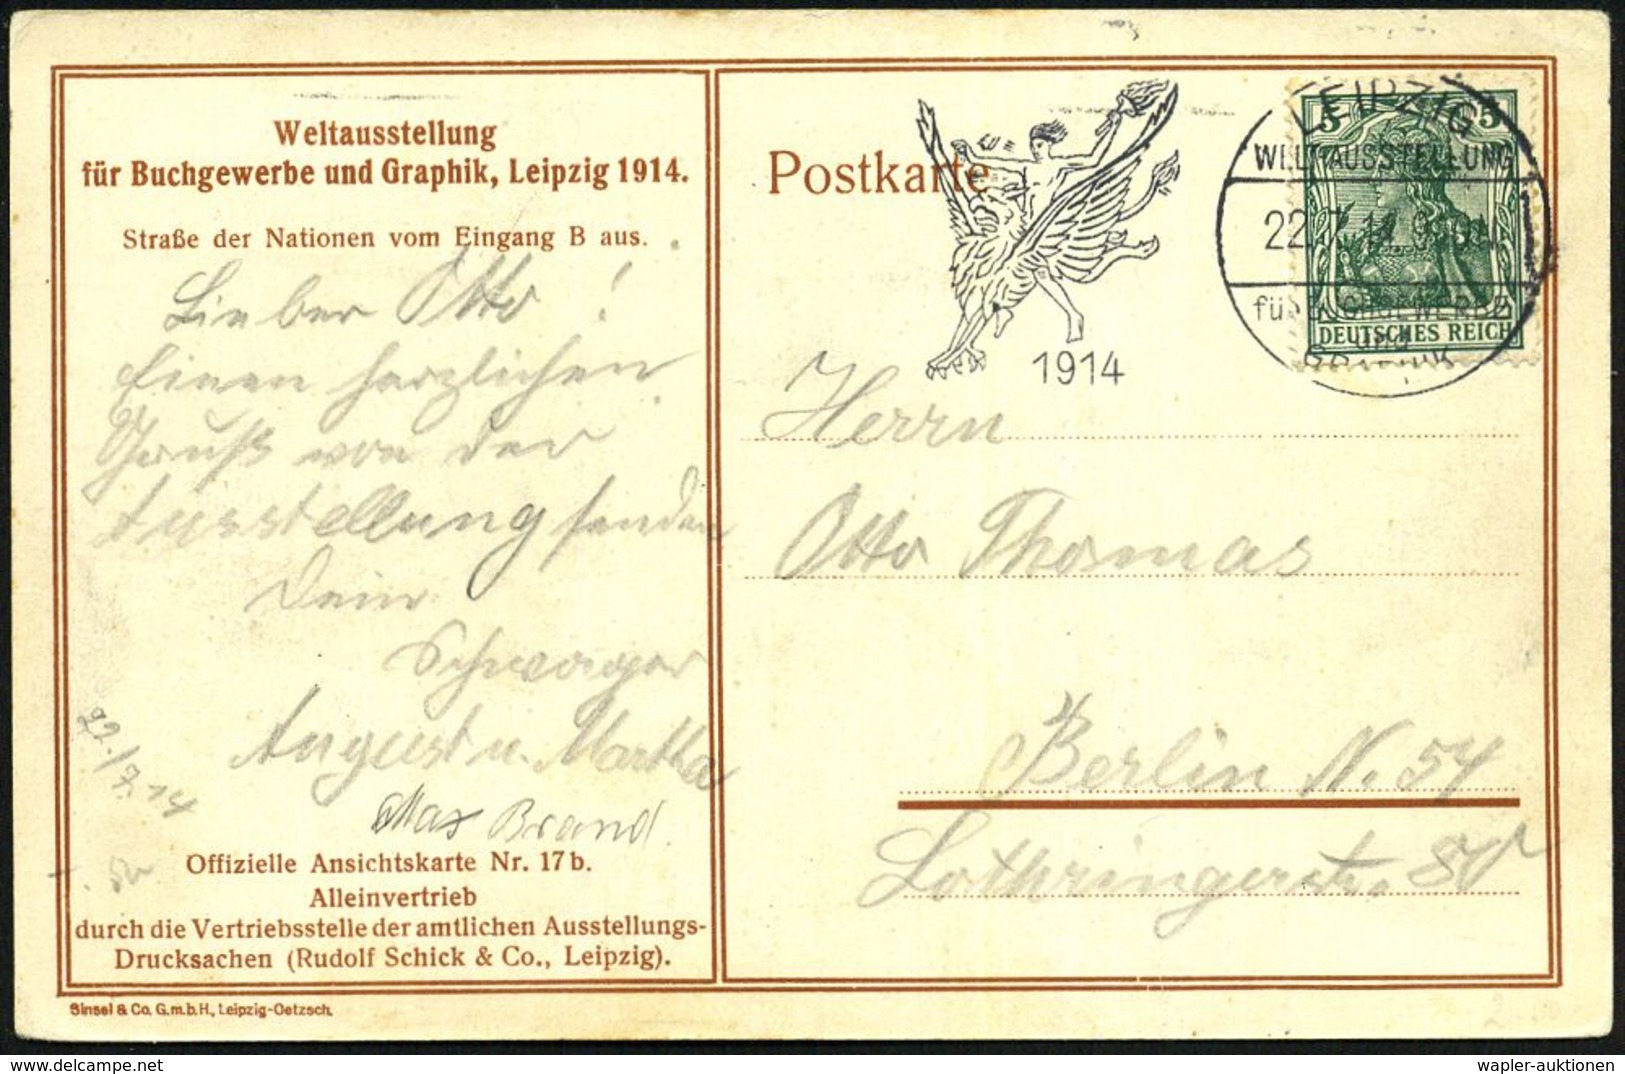 Weltausstellung
für Buchgewerbe und Graphik, Leipzig 1914.
Straße der Nationen vom Eingang B aus.
Lieber Otto!
Einen herzlichen
Gruß von der
Ausstellung senden
Dein
Schwager
August u. Martha
Max Brand.
22./7.14
Offizielle Ansichtskarte Nr. 17b.
Alleinvertrieb
durch die Vertriebsstelle der amtlichen Ausstellungs-
Drucksachen (Rudolf Schick & Co., Leipzig).
Sinsel & Co. G.m.b.H., Leipzig-Oetzsch.
Postkarte
1914
LEIPZIG
WELTAUSSTELLUNG
22.7.14. 9
für BUCHGEWERBE
und
GRAPHIK
5 5
DEUTSCHES REICH
Herrn
Otto Thomas
Berlin N. 54
Lothringerstr.
delcampe.net
wapler-auktionen